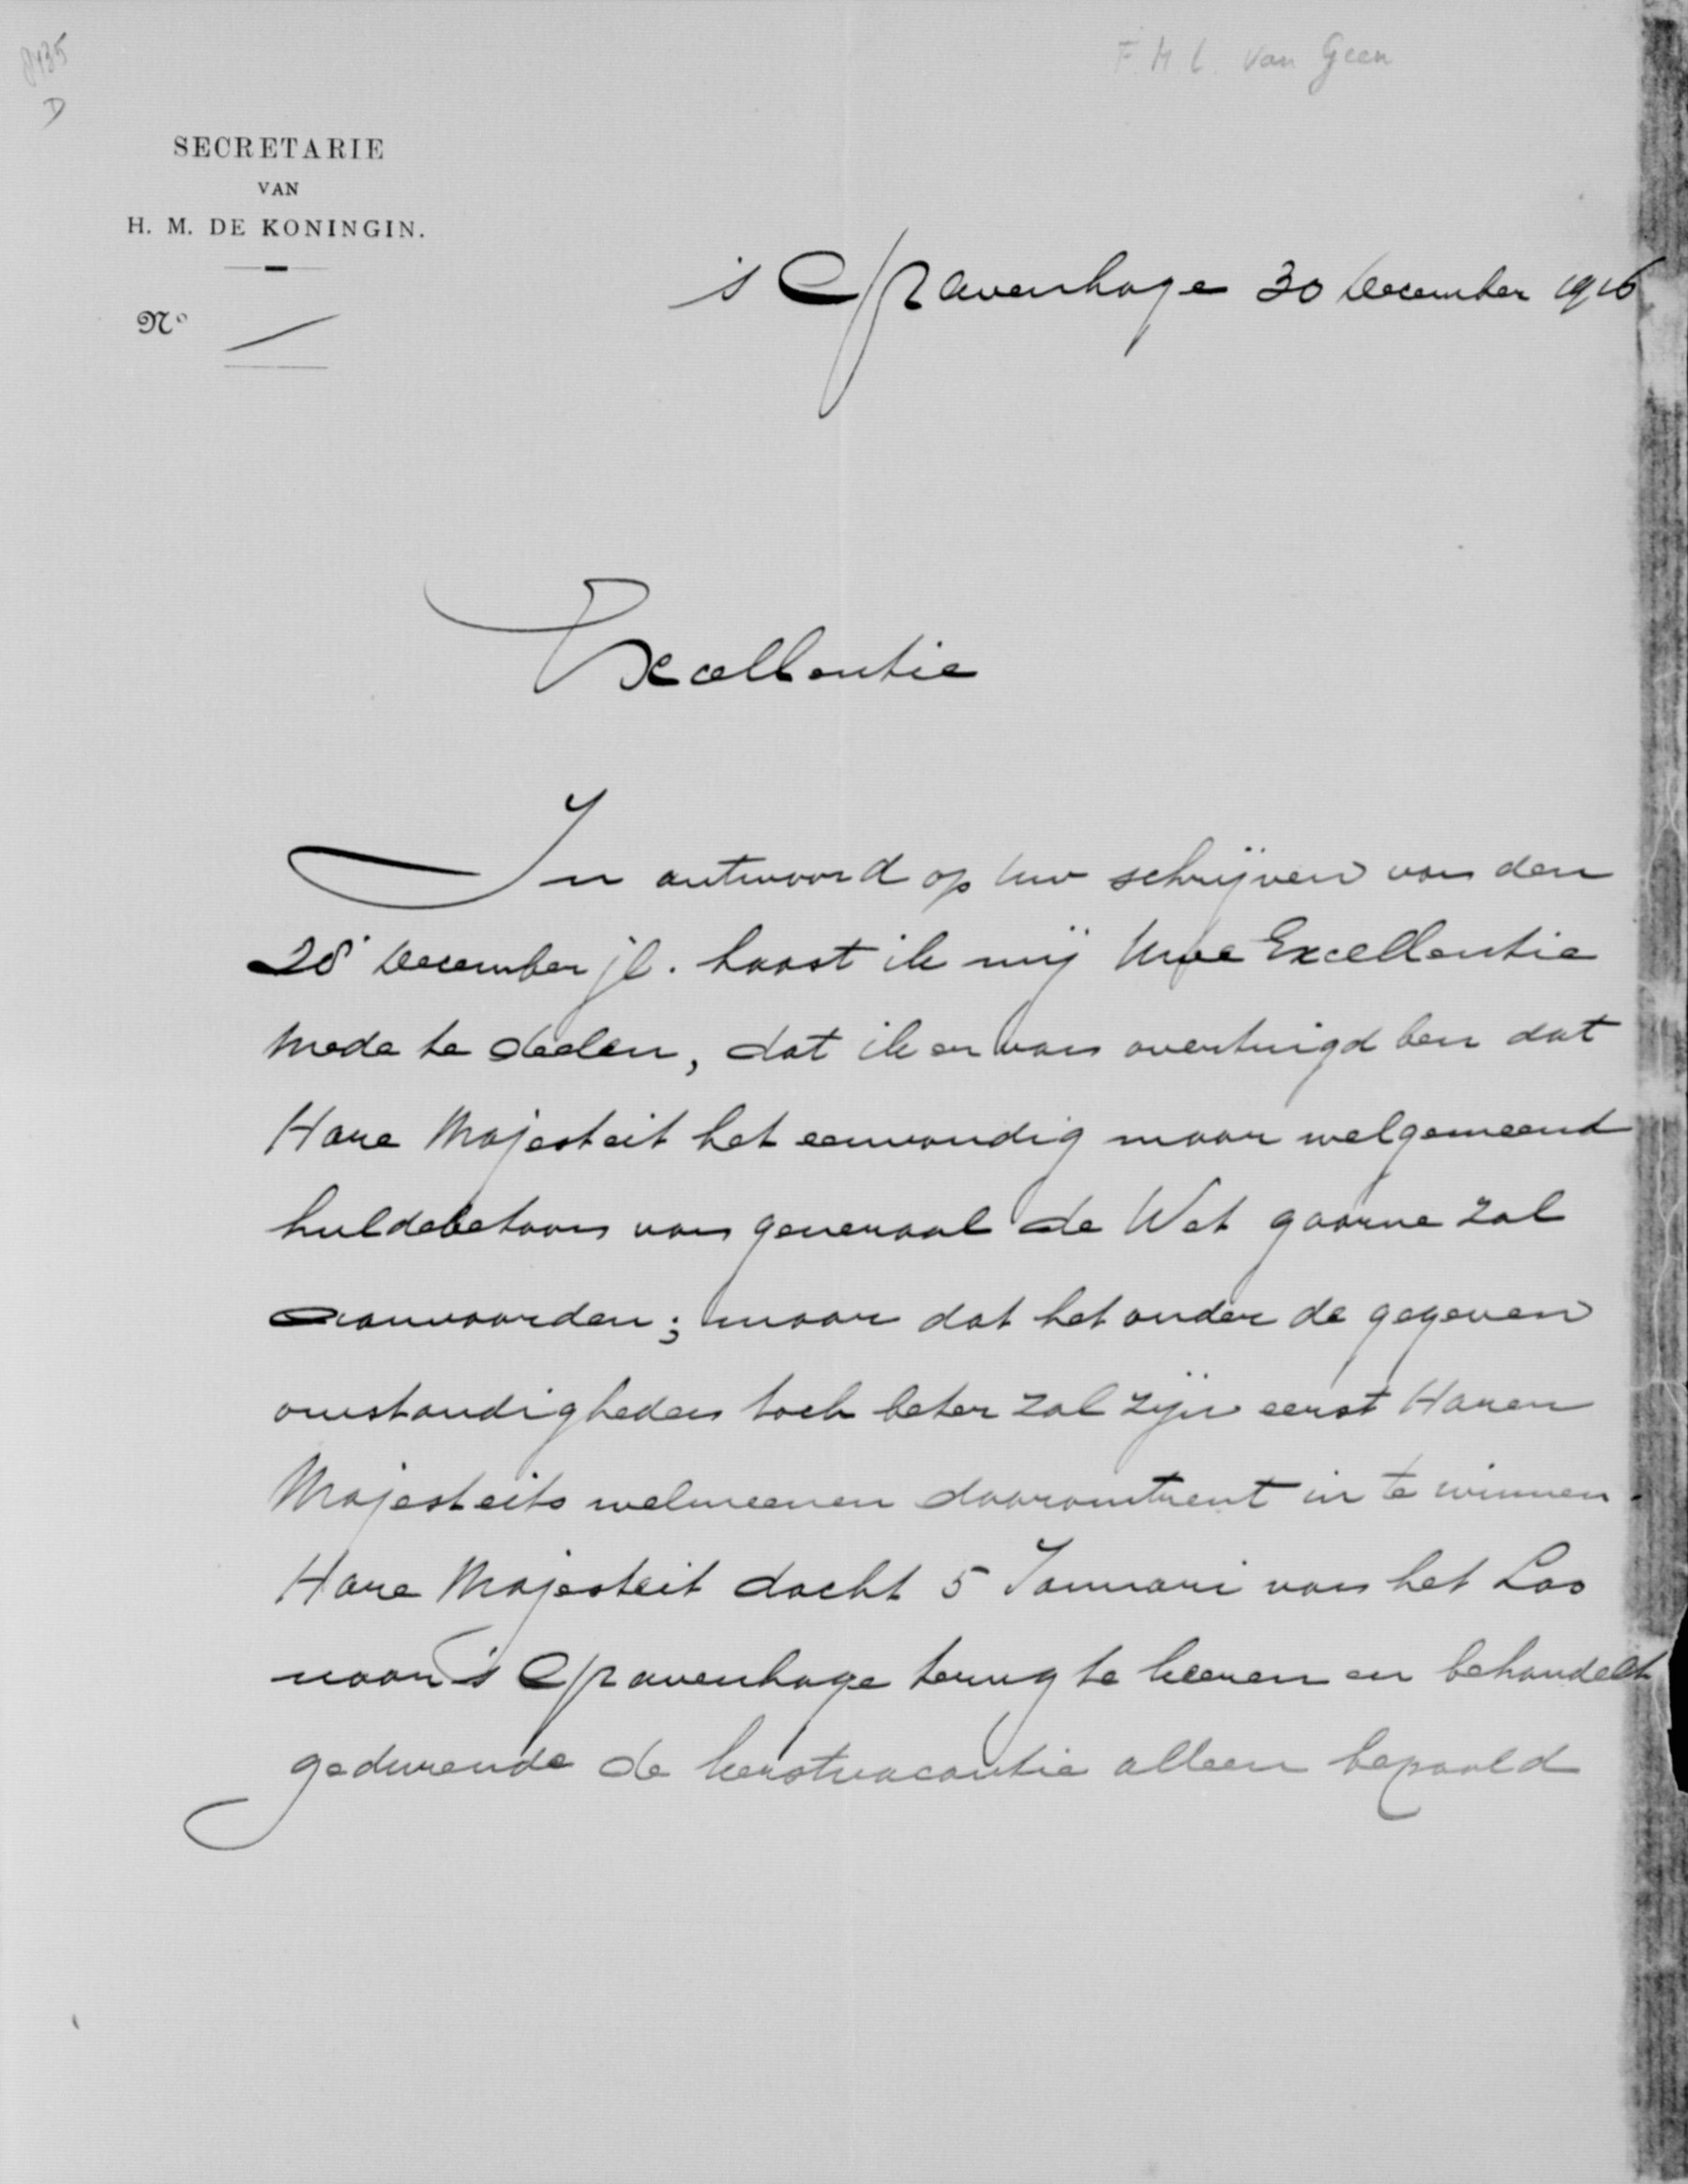 8135
D
F. H. L. van Geen
SECRETARIE
VAN
H. M. DE KONINGIN.
No
's Gravenhage 30 December 1916
Excellentie
In antwoord op Uw schrijven van den
28 December jl. haast ik mij Uwe Excellentie
mede te deelen, dat ik er van overtuigd ben dat
Hare Majesteit het eenvoudig maar welgemeend
huldebetoon van generaal de Wet gaarne zal
aanvaarden; maar dat het onder de gegeven
omstandigheden toch beter zal zijn eerst Harer
Majesteits welmeenen daaromtrent in te winnen.
Hare Majesteit dacht 5 Januari van het Loo
naar 's Gravenhage terug te keeren en behandelt
gedurende de kerstvacantie alleen bepaald